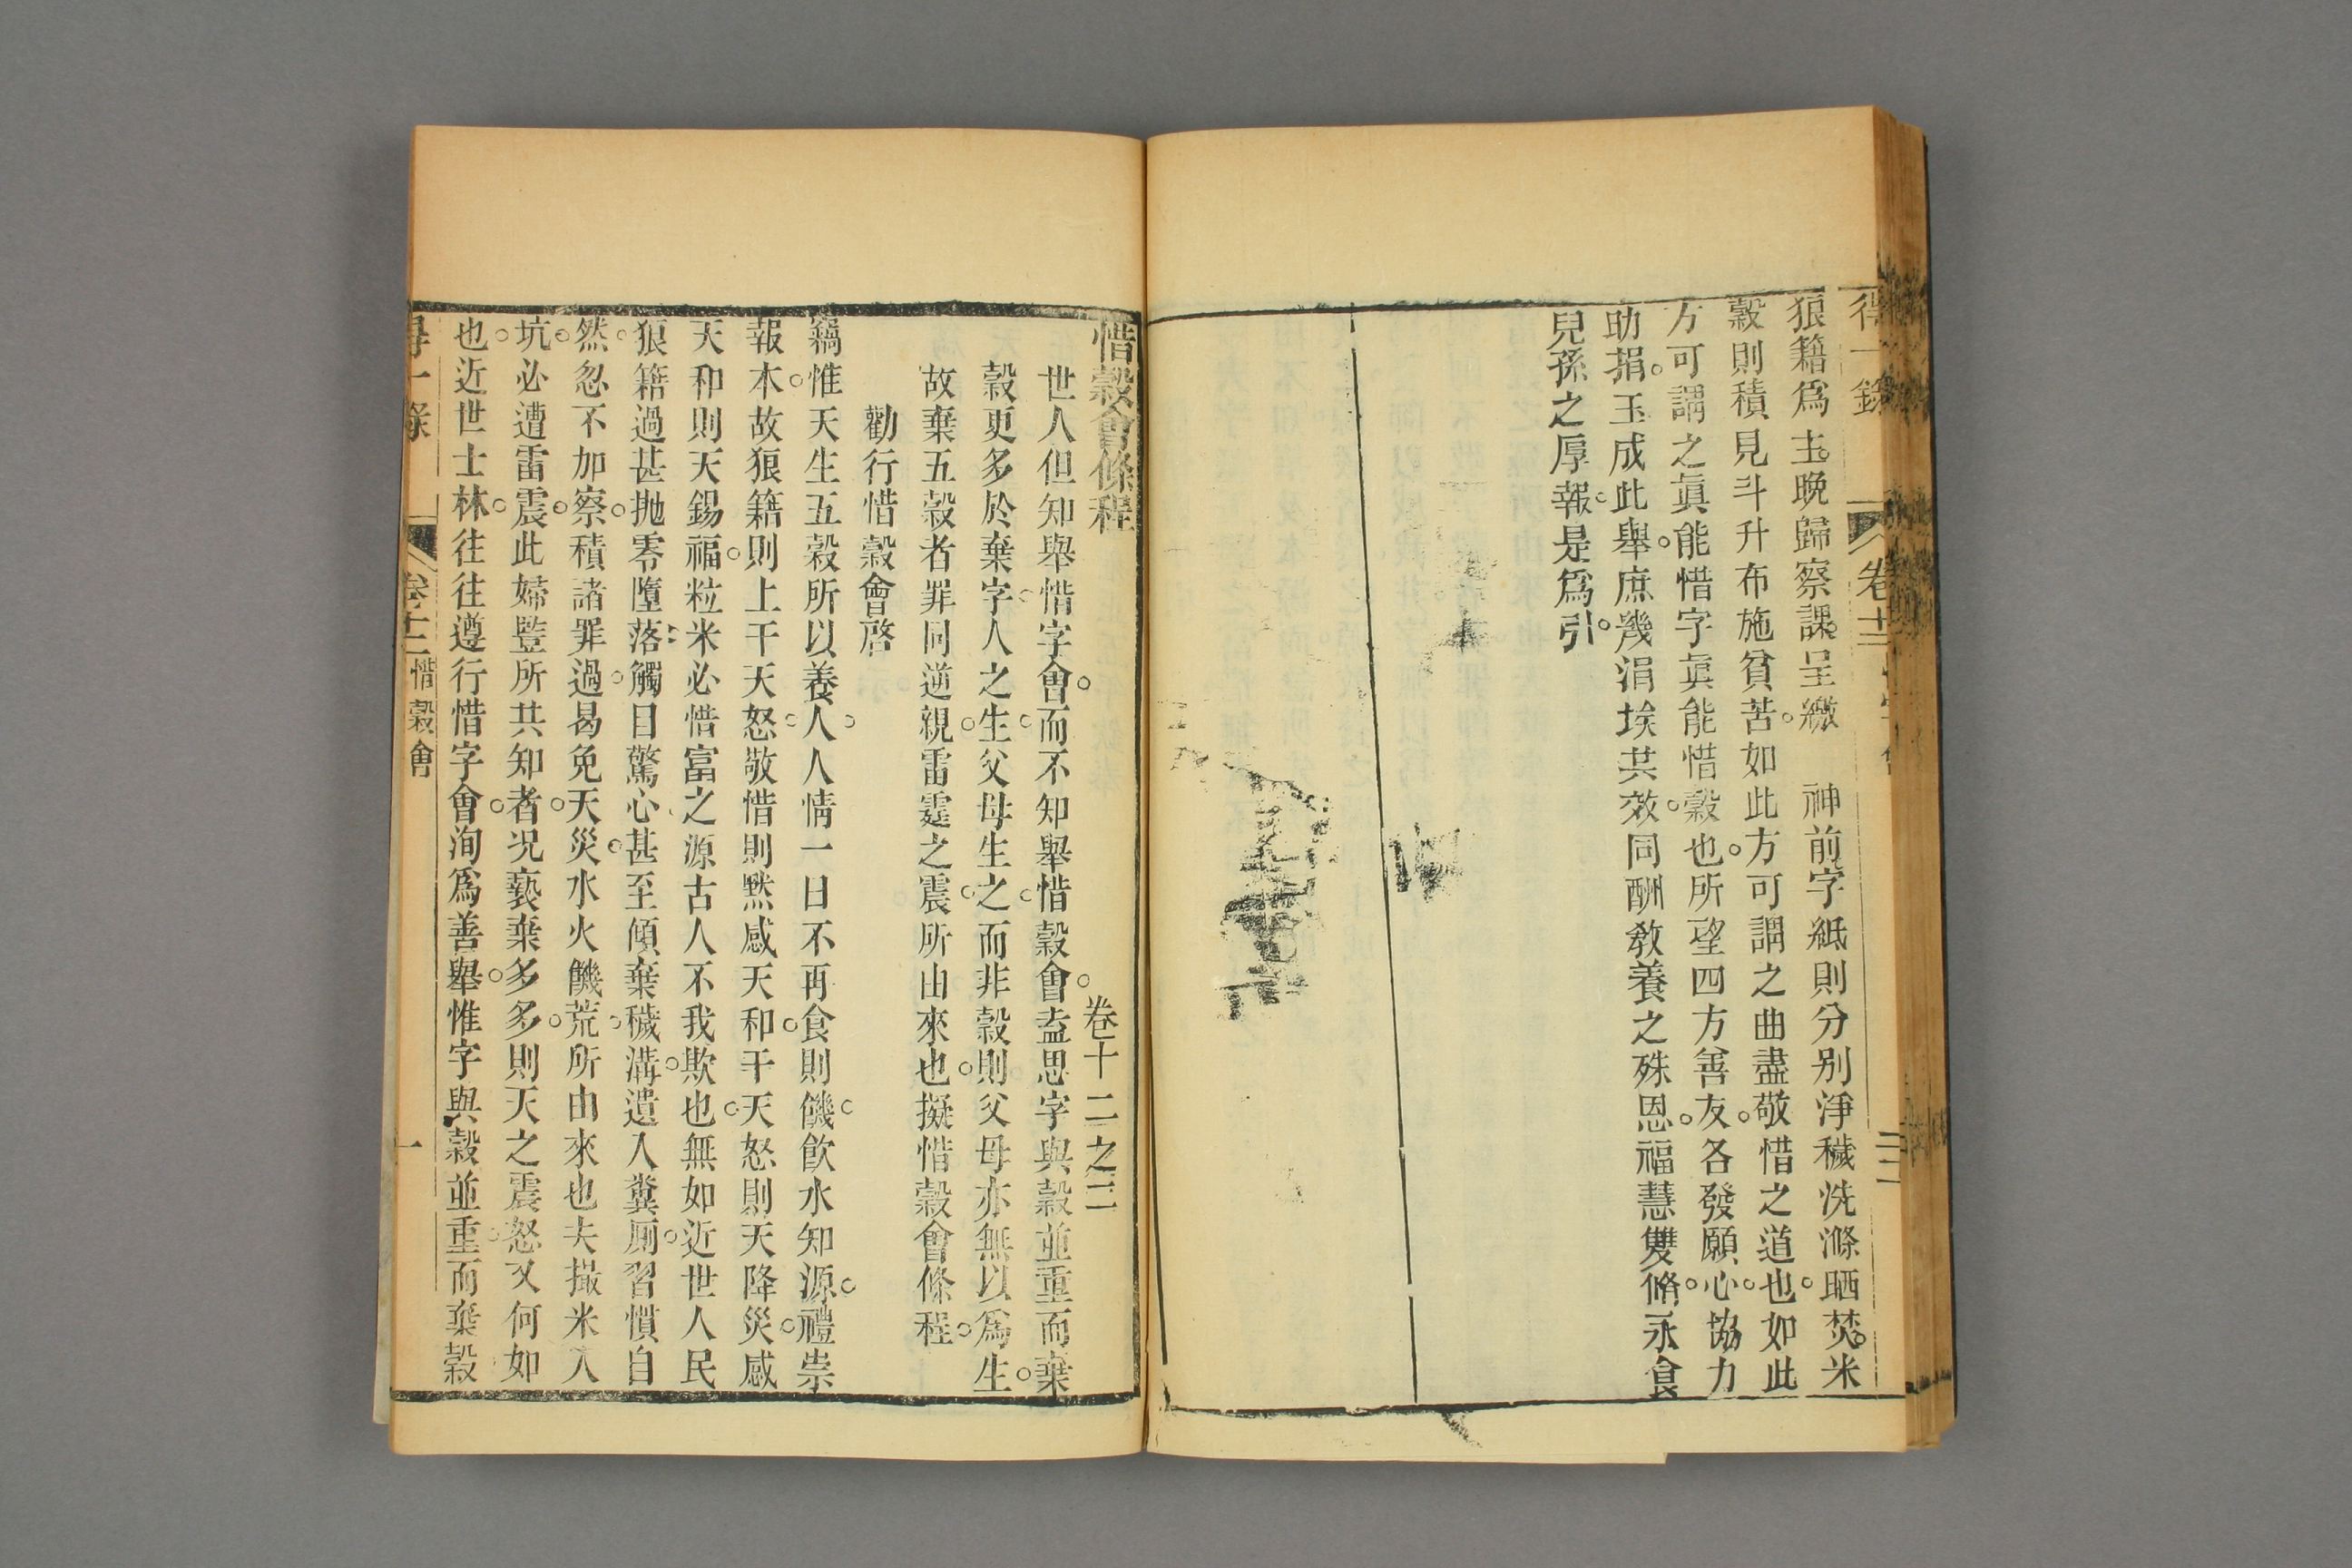 得一錄 卷十二 二二
狼籍爲主晚歸察課呈繳 神前字紙則分别淨穢洗滌晒焚米
穀則積見斗升布施貧苦如此方可謂之曲盡敬惜之道也如此
方可謂之眞能惜字眞能惜穀也所望四方善友各發願心協力
助捐玉成此舉庶幾涓埃共效同酬敎養之殊恩福慧雙脩永食
兒孫之厚報是爲引
惜穀會條程 卷十二之二
世人但知舉惜字會而不知舉惜穀會盍思字與穀並重而棄
穀更多於棄字人之生父母生之而非穀則父母亦無以爲生
故棄五穀者罪同逆親雷霆之震所由來也擬惜穀會條程
勸行惜穀會啓
竊惟天生五穀所以養人人情一日不再食則饑飮水知源禮崇
報本故狼籍則上干天怒敬惜則默感天和干天怒則天降災感
天和則天錫福粒米必惜富之源古人不我欺也無如近世人民
狼籍過甚抛零墮落觸目驚心甚至傾棄穢溝遺入糞厠習慣自
然忽不加察積諸罪過曷免天災水火饑荒所由來也夫撮米入
坑必遭雷震此婦豎所共知者况褻棄多多則天之震怒又何如
也近世士林往往遵行惜字會洵爲善舉惟字與穀並重而棄穀
得一錄 卷十二 惜穀會 一